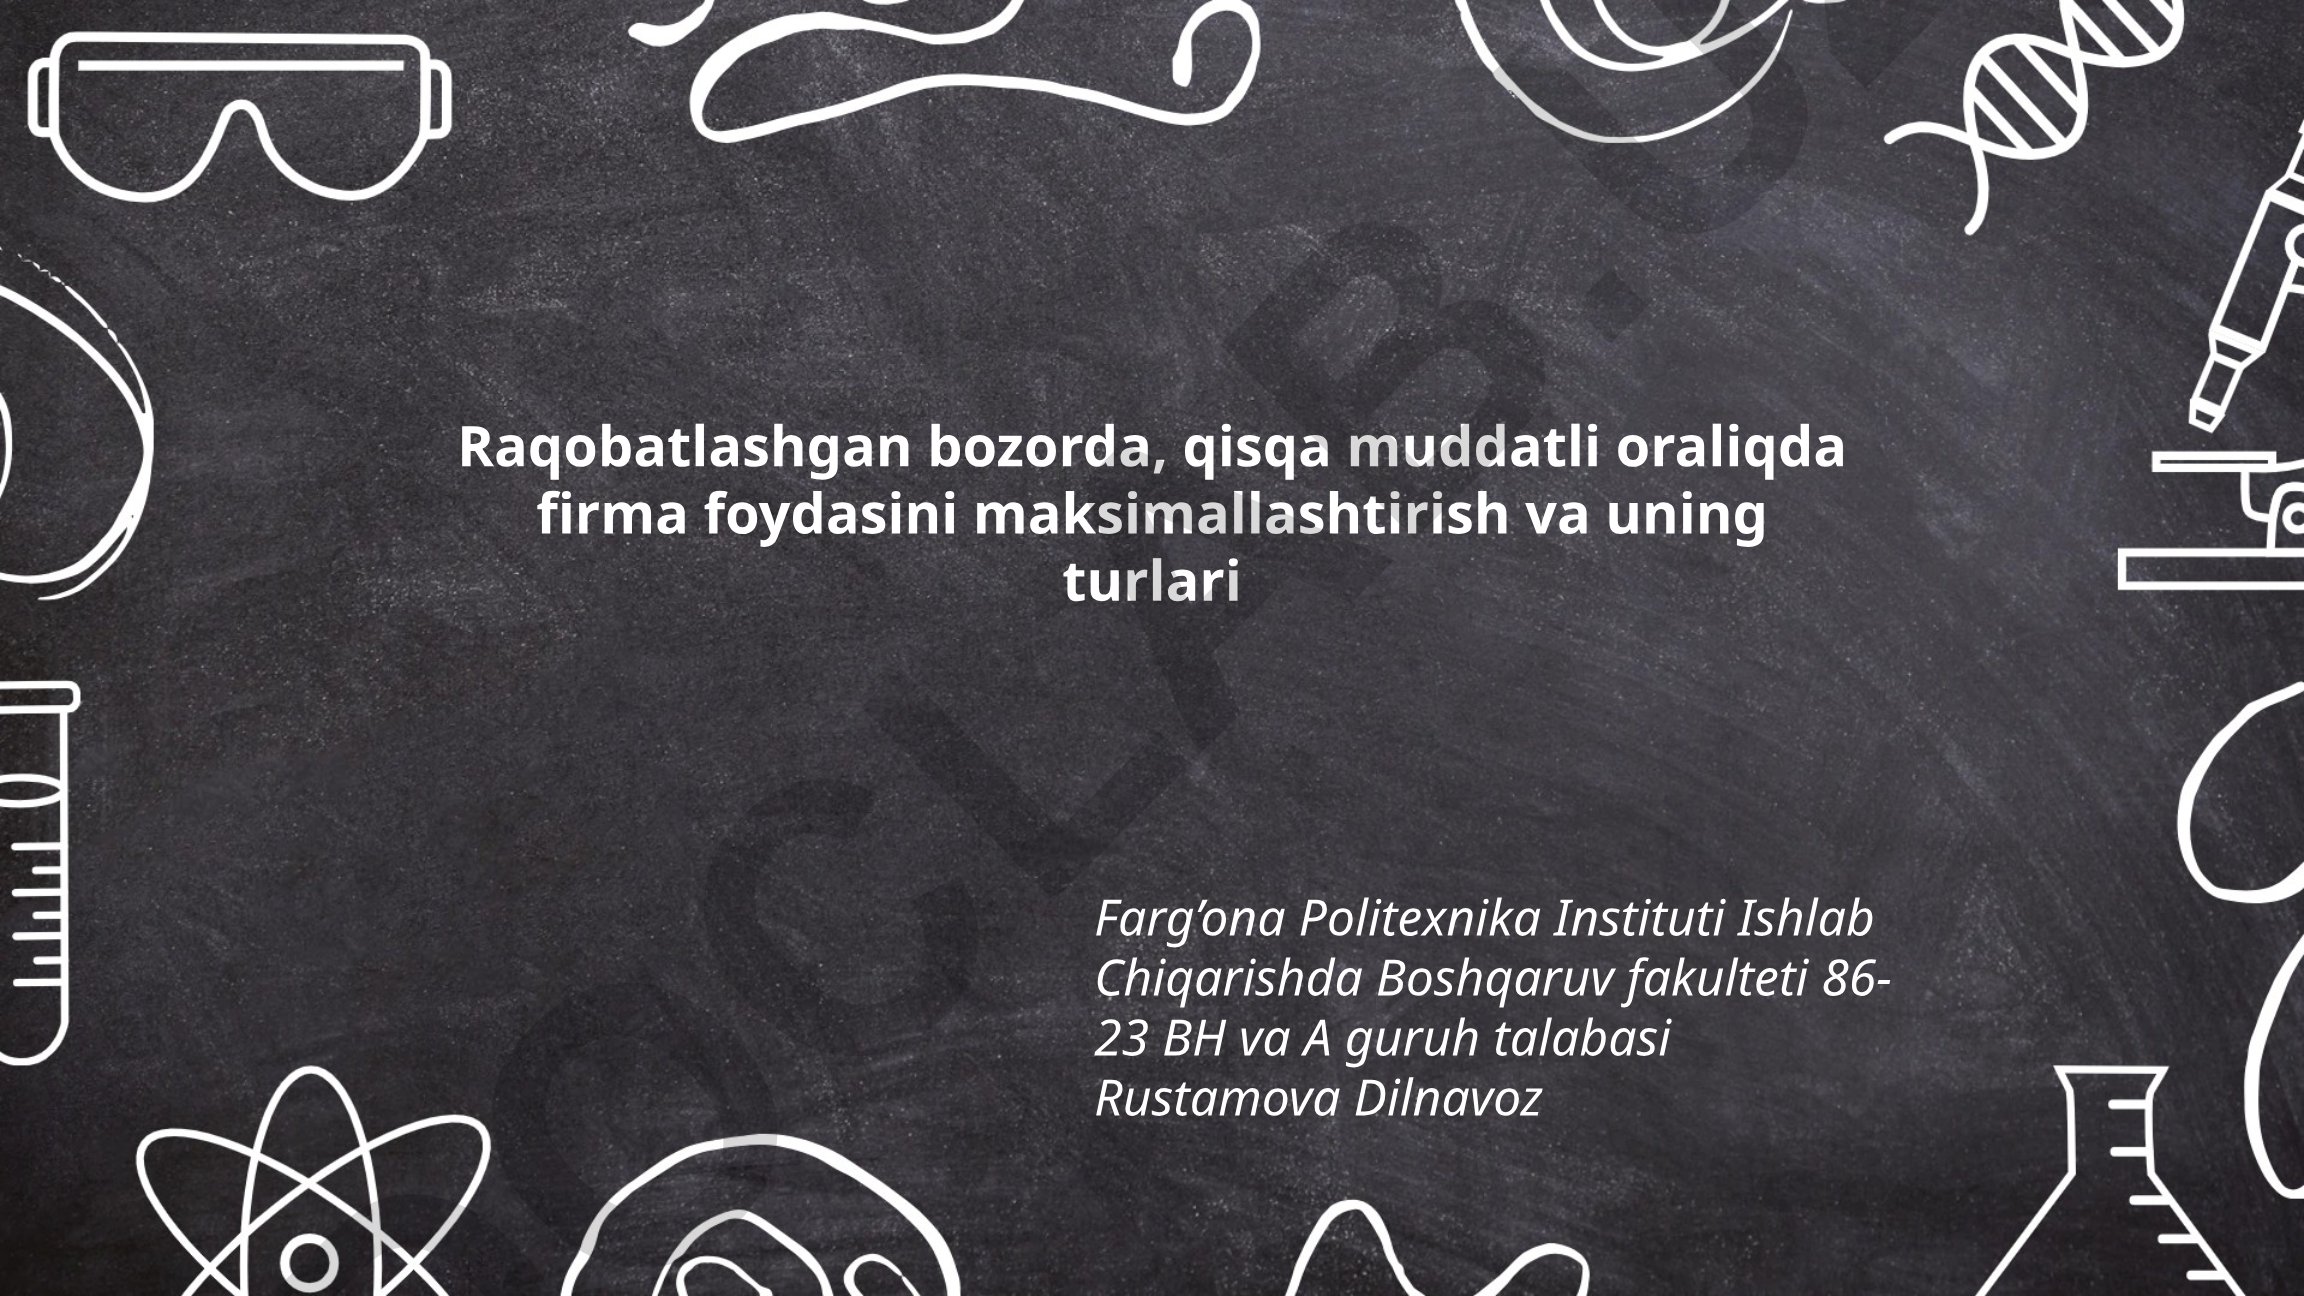 Raqobatlashgan bozorda, qisqa muddatli oraliqda
firma foydasini maksimallashtirish va uning
turlari
Farg’ona Politexnika Instituti Ishlab
Chiqarishda Boshqaruv fakulteti 86-
23 BH va A guruh talabasi
Rustamova Dilnavoz